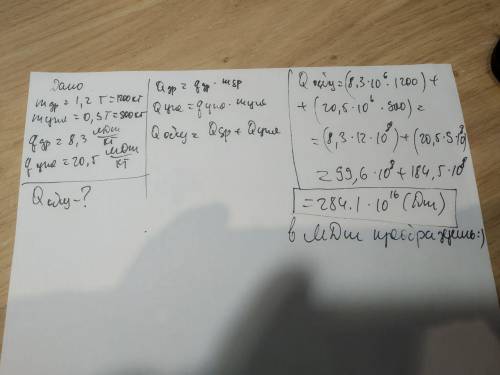 Дано
mдр = 1,2 т = 1200 кг
mугля = 0,9 т = 900 кг
qдр = 8,3 МДж/кг
qугля = 20,5 МДж/кг
Qобщ - ?
Qдр = qдр · mдр
Qугля = qугля · mугля
Qобщ = Qдр + Qугля
Qобщ = (8,3 · 10⁶ · 1200) +
+ (20,5 · 10⁶ · 900) =
= (8,3 · 12 · 10⁸) + (20,5 · 9 · 10⁸)
= 99,6 · 10⁸ + 184,5 · 10⁸
= 284.1 · 10¹⁶ (Дж)
в МДж преобразуешь :)